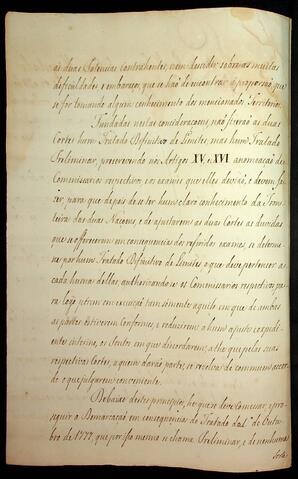 as duas Potencias contrahentes, nem decidir sobre as muitas
dificuldades e embaraços, que se hão de encontrar á proporção, que
se for tomando algum conhecimento dos mencionados Territorios.
Fundadas nestas consideraçoens, não fizerão as duas
Cortes hum Tratado Difinitivo de Limites, mas hum Tratado
Preliminar, prescrevendo nos Artigos XV, e XVI a nomeação de
Commissarios respectivos e os exames que elles devião, e devem fa-
zer, para que depois de se ter hum claro conhecimento da Fron-
teira das duas Naçoens, e de ajustarem as duas Cortes as duvidas
que se offerecerem em consequencia dos referidos exames, se determi-
ne por hum Tratado Difinitivo de Limites o que deve pertencer a
cada huma dellas; authorizando-se os Commissarios respectivos pa-
ra logo pôrem em execução tam sómente aquillo em que de ambas
as partes estiverem conformes, e reduzirem a hum ajuste e expedi-
ente interino, os pontos em que discordarem; athe que pelas suas
respectivas Cortes, a quem darão parte, se resolva de commum acor-
do o que julgarem conveniente.
Debaixo destes principios, he que se deve começar, e pro-
seguir a Demarcação em consequencia do Tratado do 1.º de Outu-
bro de 1777, que por isso mesmo se chama Preliminar, e de nenhuma
sorte